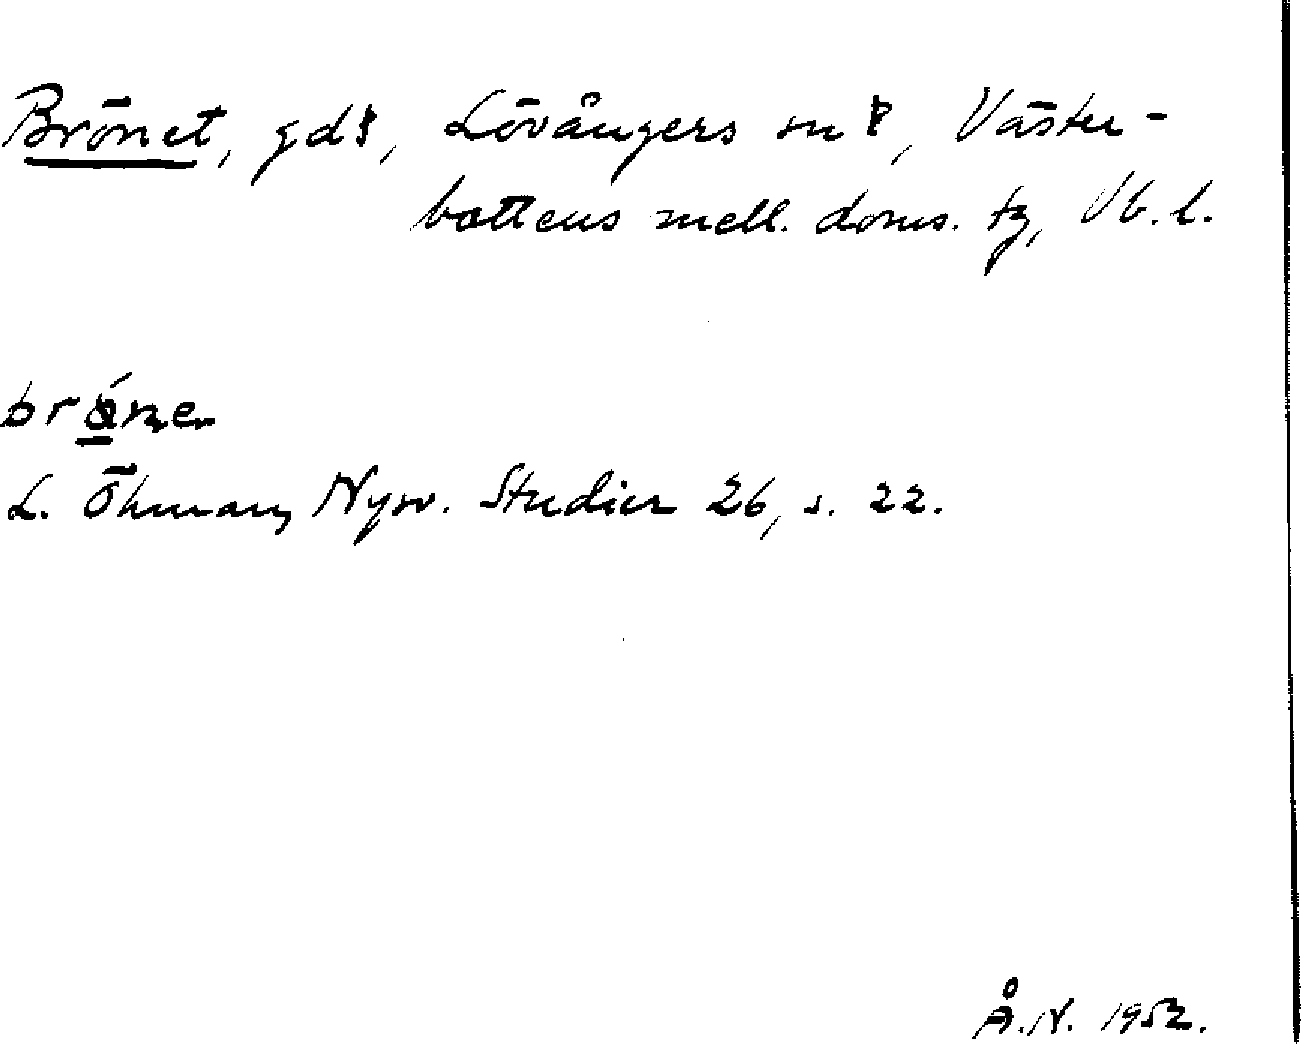 Brönet, gd, Lövångers sn, Väster-
bottens mell. doms. tg, Vb. l.
L. Öhman, Nysv. Studier 26, s. 22.
Å.N. 1952.